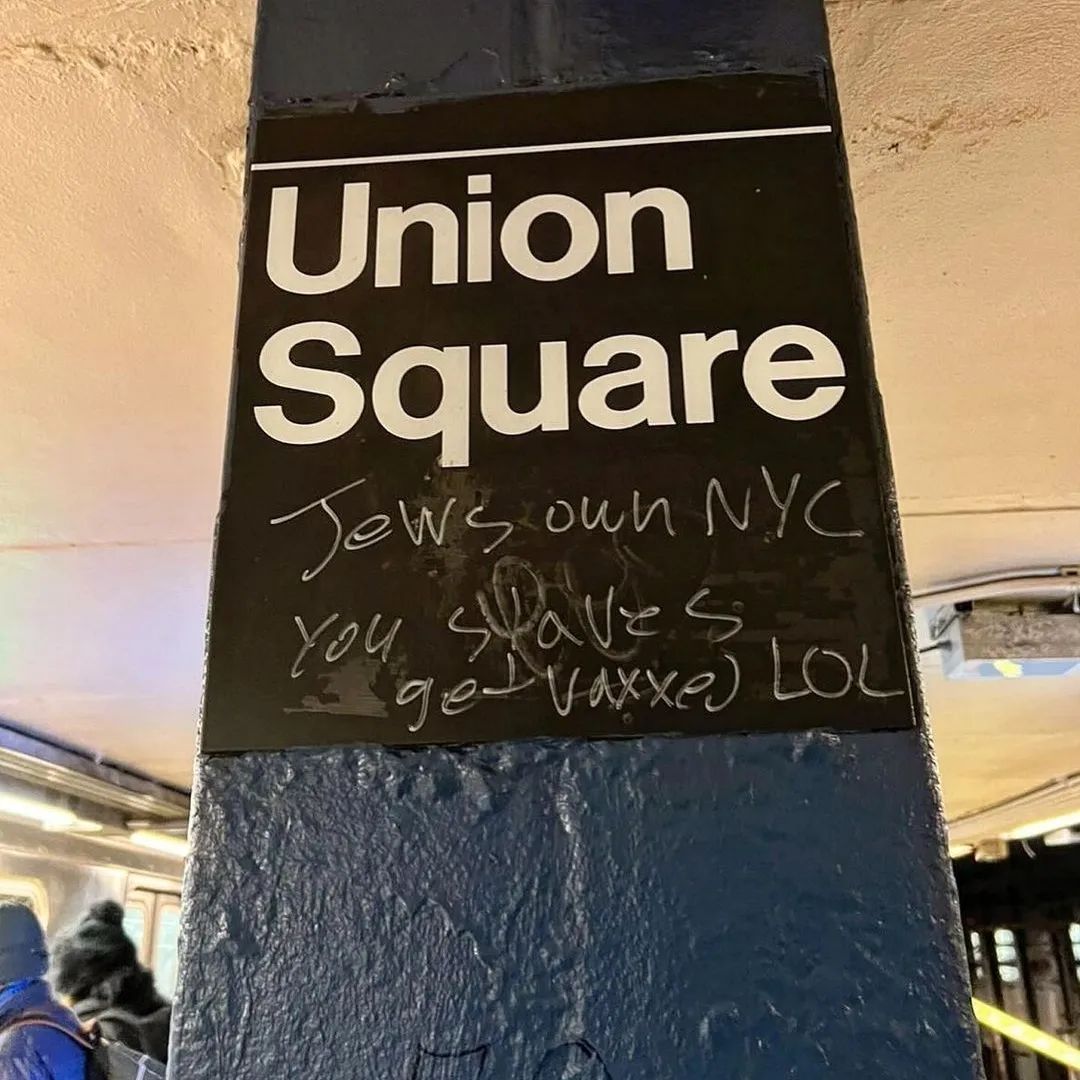 Union
Square
Jews own NYC
You slaves
get vaxxed LOL